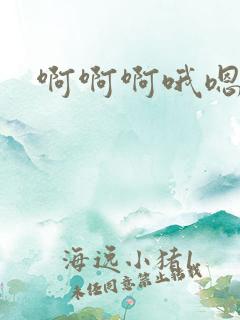 啊啊啊哦嗯
海远小猪l
未经同意禁止转载